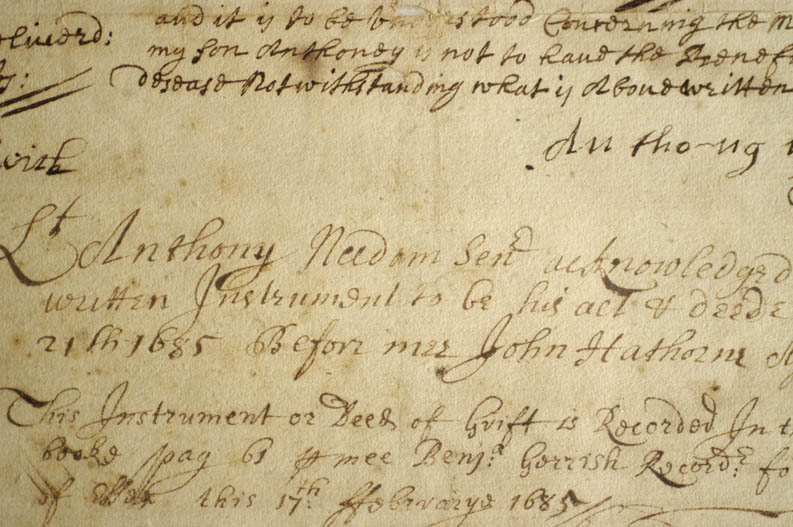 and it is to be Understood Concerning the
eliuerd: my son Anthoney is not to haue the Benef
desease Notwithstanding what is Aboue written
with An tho-ny
Lt Anthony Needom Senr acknowledged
written Instrument to be his act & deede
21th 1685 Before mee John Hathorne
This Instrument or Deed of Guift is Recorded In
booke pag 61 mee Benj: Gerrish Recordr: fo
of this 17th: ffebruarye 1685